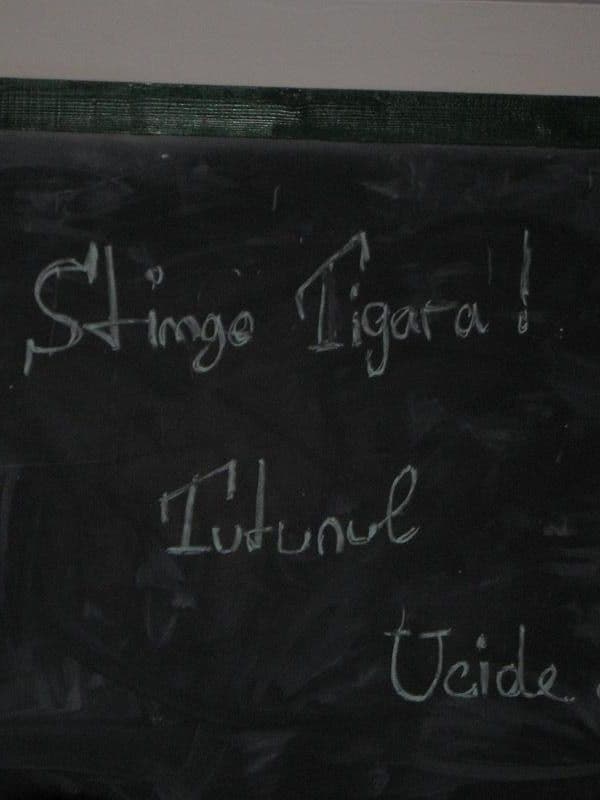 Stinge Tigara!
Tutunul
Ucide.